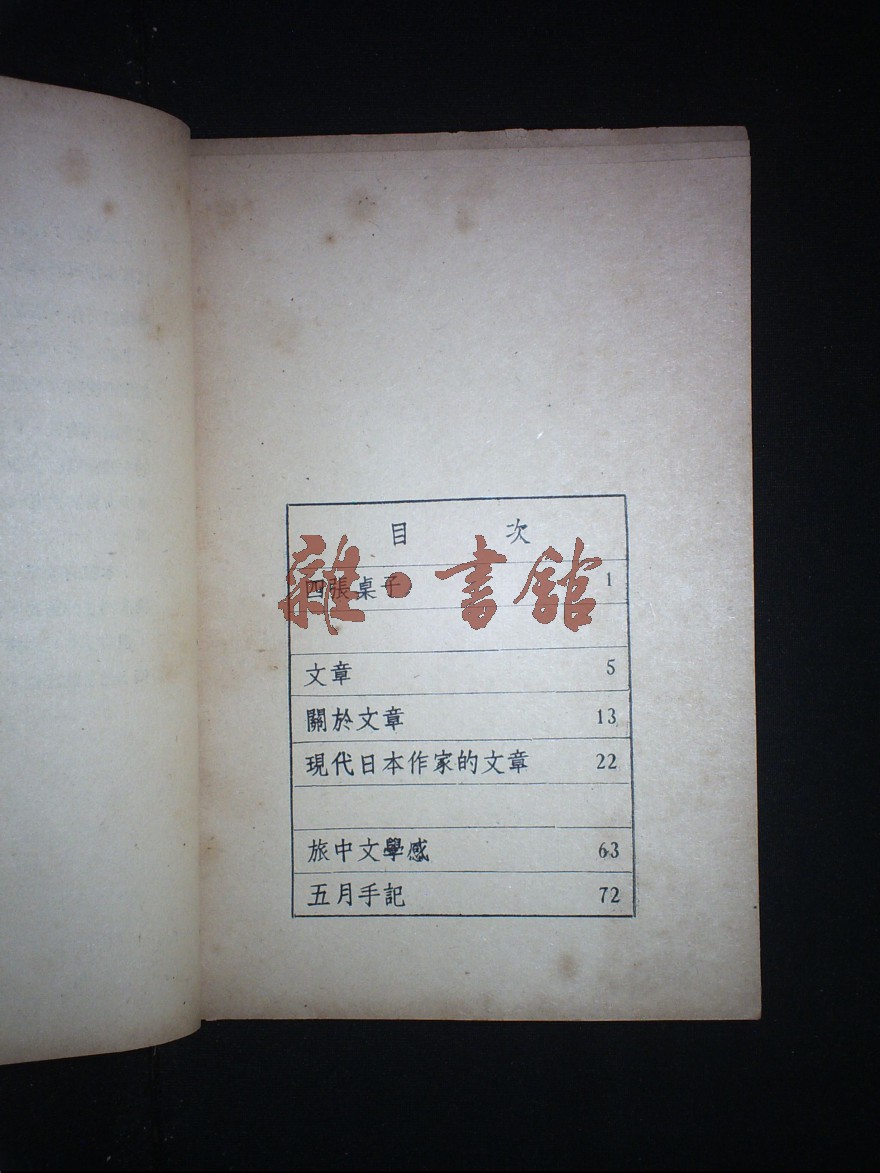 目 次
四張桌子 1
雜·書館
文章 5
關於文章 13
現代日本作家的文章 22
旅中文學感 63
五月手記 72